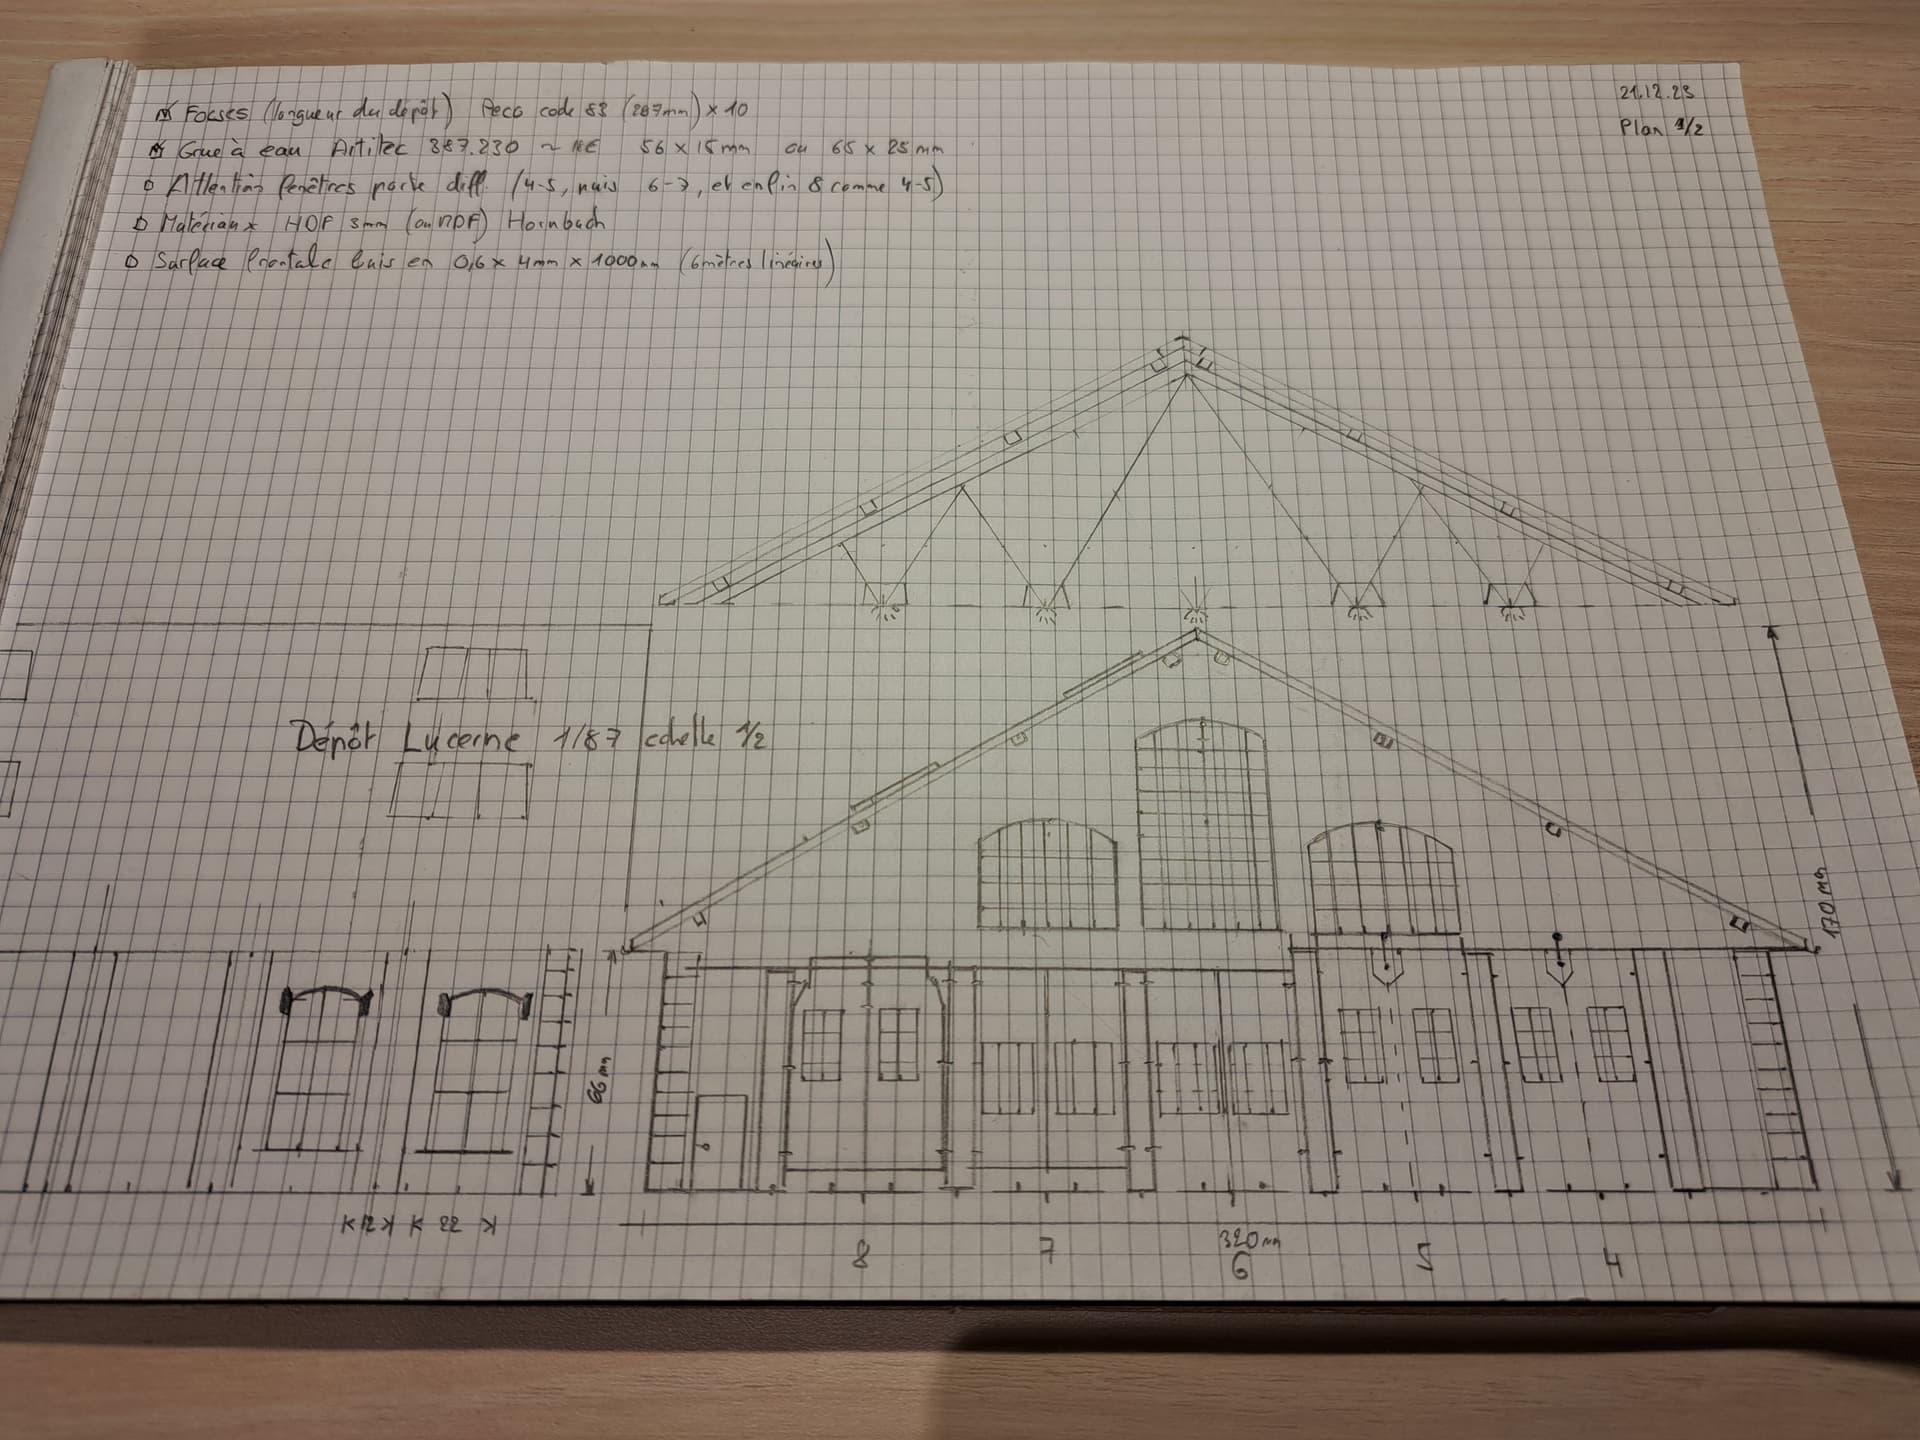 21.12.23
Plan 1/2
Fosses (longueur du dépôt) Peco code 83 (287mm) × 10
Grue à eau Artitec 387.230 ~ 56 × 15mm ou 65 × 25mm
Attention fenêtres porte diff. (4-5, puis 6-7, et enfin 8 comme 4-5)
Matériaux HDF 3mm (ou MDF) Hornbach
Surface frontale bois en 0,6 × 4mm × 1000mm (6 mètres linéaires)
Dépôt Lucerne 1/87 echelle 1/2
170 mm
66 mm
12 22
320 mm
8 7 6 5 4